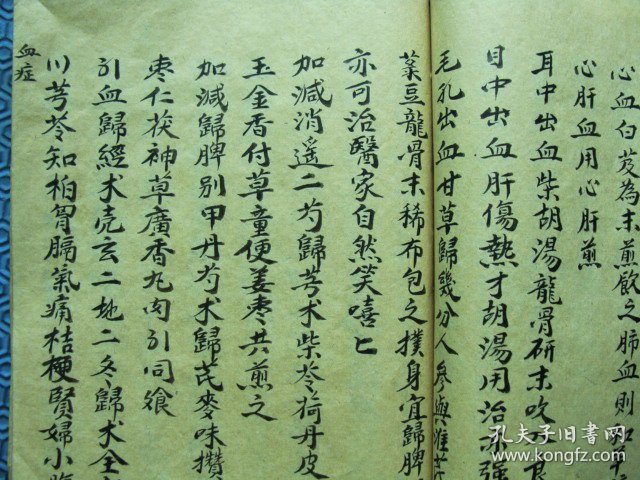 心血白芨為末煎飲之肺血則
心肝血用心肝煎
耳中出血柴胡湯龍骨研末吹
目中出血肝傷熱才胡湯用治亦強
毛孔出血甘草歸幾分人參與淮
菉豆龍骨末稀布包之撲身宜歸脾
亦可治醫家自然笑嘻匕
加減消遥二芍歸芩术柴苓荷丹皮
玉金香付草童便姜枣共煎之
加減歸脾别甲丹芍术歸芪麥味攢
枣仁茯神草廣香九肉引同飱
引血歸經术壳玄二地二冬歸术全
川芎苓知柏胃膈氣痛桔梗賢婦小
血症
孔夫子旧书网
www.kongfz.com